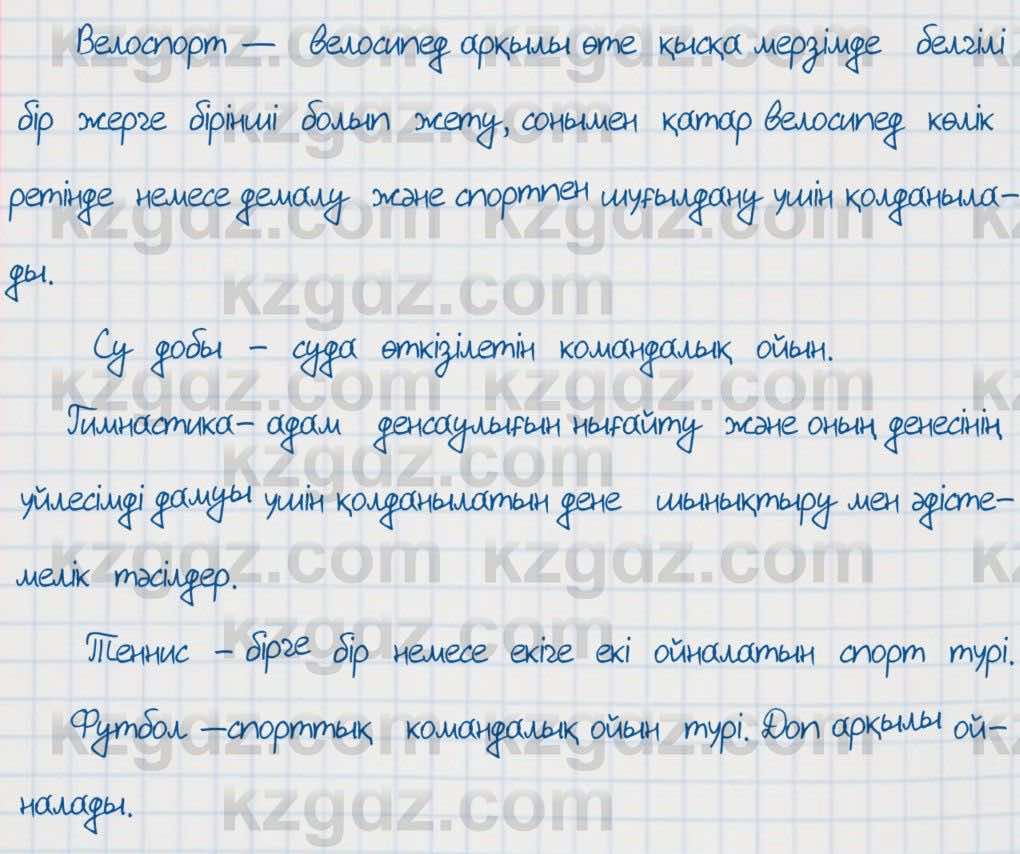 Велоспорт — велосипед арқылы өте қысқа мерзімде белгілі
бір жерге бірінші болып жету, сонымен қатар велосипед көлік
ретінде немесе демалу және спортпен шуғылдану үшін қолданыла-
ды.
Су добы - суда өткізілетін командалық ойын.
Гимнастика- адам денсаулығын нығайту және оның денесінің
үйлесімді дамуы үшін қолданылатын дене шынықтыру мен әдісте-
мелік тәсілдер.
Теннис - бірге бір немесе екіге екі ойналатын спорт түрі.
Футбол —спорттық командалық ойын түрі. Доп арқылы ой-
налады.